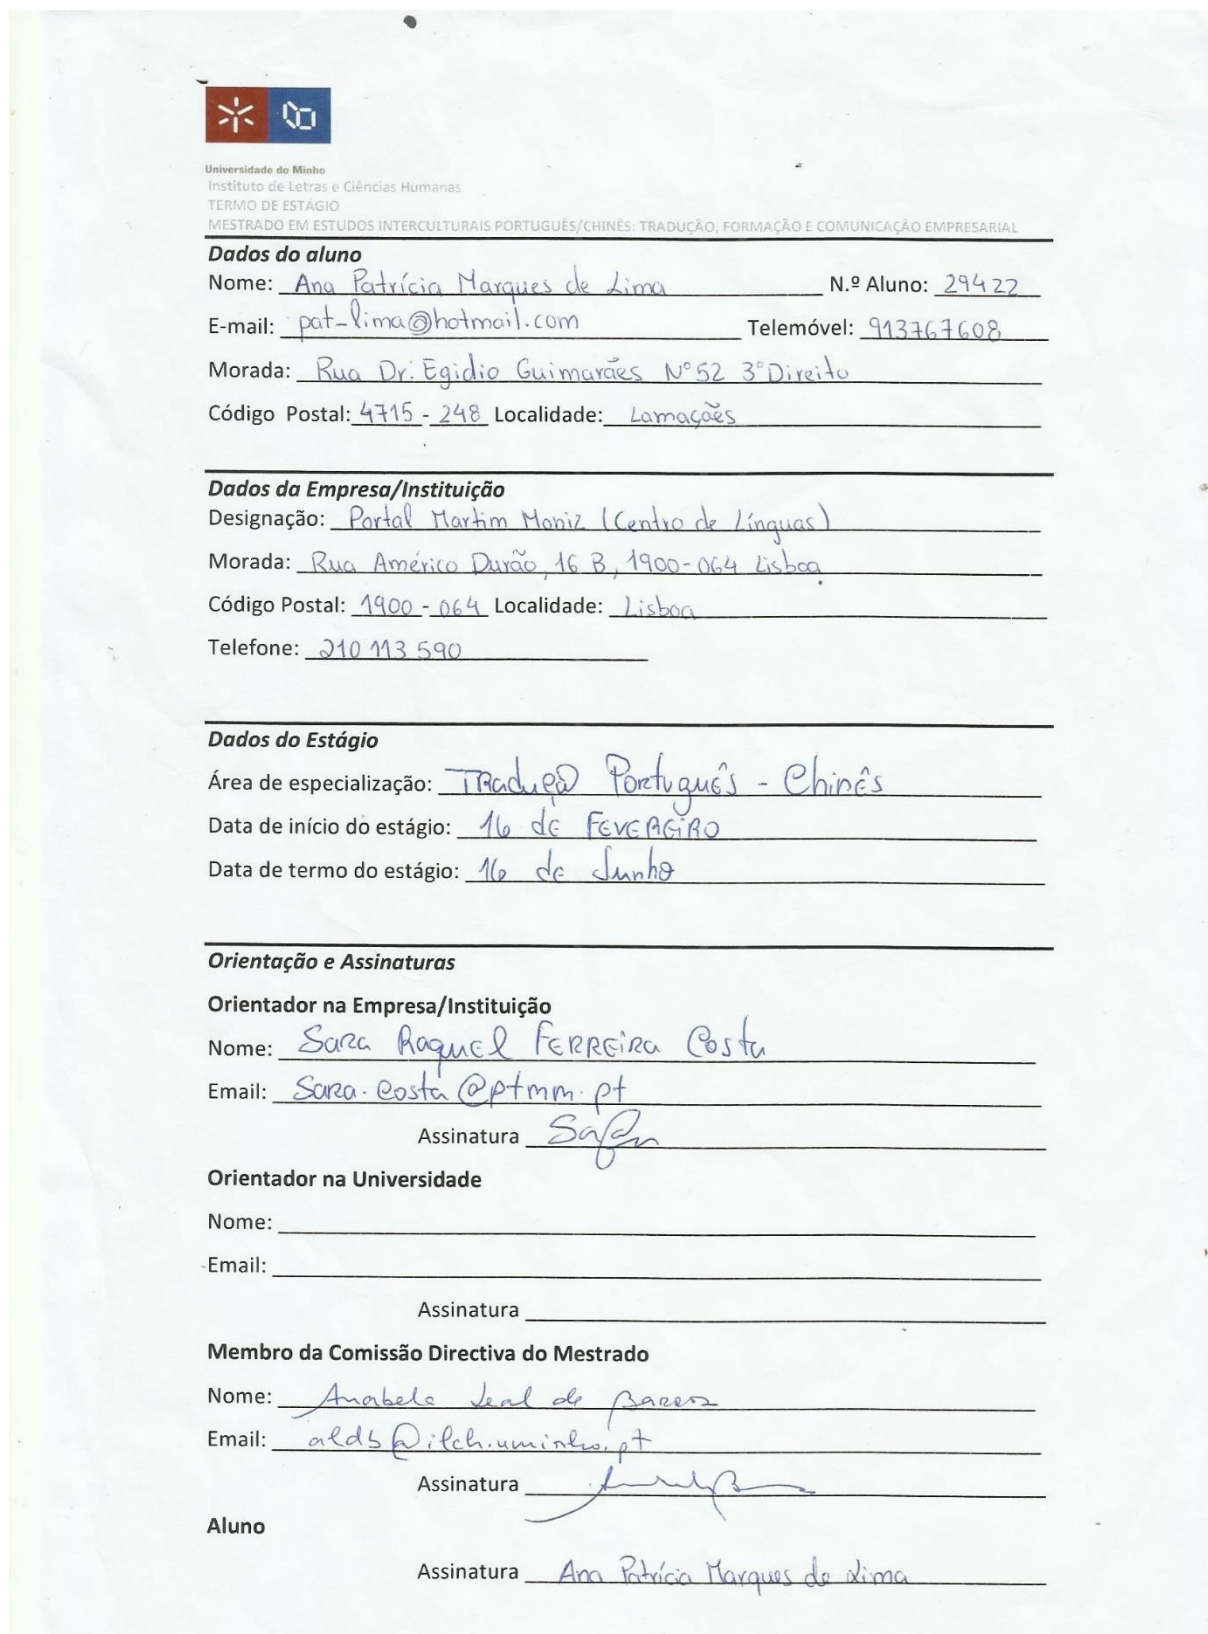 Universidade do Minho
Instituto de Letras e Ciências Humanas
TERMO DE ESTÁGIO
MESTRADO EM ESTUDOS INTERCULTURAIS PORTUGUÊS/CHINÊS: TRADUÇÃO, FORMAÇÃO E COMUNICAÇÃO EMPRESARIAL
Dados do aluno
Nome: Ana Patrícia Marques de Lima N.º Aluno: 29422
E-mail: pat-lima@hotmail.com Telemóvel: 913767608
Morada: Rua Dr. Egidio Guimarães Nº52 3º Direito
Código Postal: 4715 - 248 Localidade: Lamaçães
Dados da Empresa/Instituição
Designação: Portal Martim Moniz (Centro de Línguas)
Morada: Rua Américo Durão, 16 B, 1900-064 Lisboa
Código Postal: 1900 - 064 Localidade: Lisboa
Telefone: 210 113 590
Dados do Estágio
Área de especialização: Tradução Português - Chinês
Data de início do estágio: 16 de FEVEREIRO
Data de termo do estágio: 16 de Junho
Orientação e Assinaturas
Orientador na Empresa/Instituição
Nome: Sara Raquel FERREIRA Costa
Email: Sara.costa@ptmm.pt
Assinatura
Orientador na Universidade
Nome:
Email:
Assinatura
Membro da Comissão Directiva do Mestrado
Nome: Anabela Leal de Barros
Email: aldb@ilch.uminho.pt
Assinatura
Aluno
Assinatura Ana Patrícia Marques de Lima